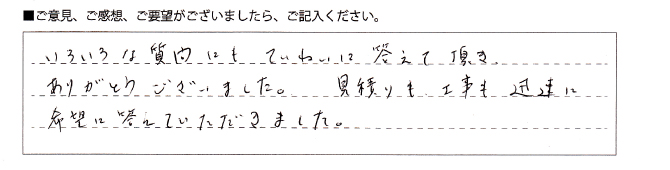 ■ご意見、ご感想、ご要望がございましたら、ご記入ください。
いろいろな質問にもていねいに答えて頂き、
ありがとうございました。 見積りも工事も迅速に
希望に答えていただきました。